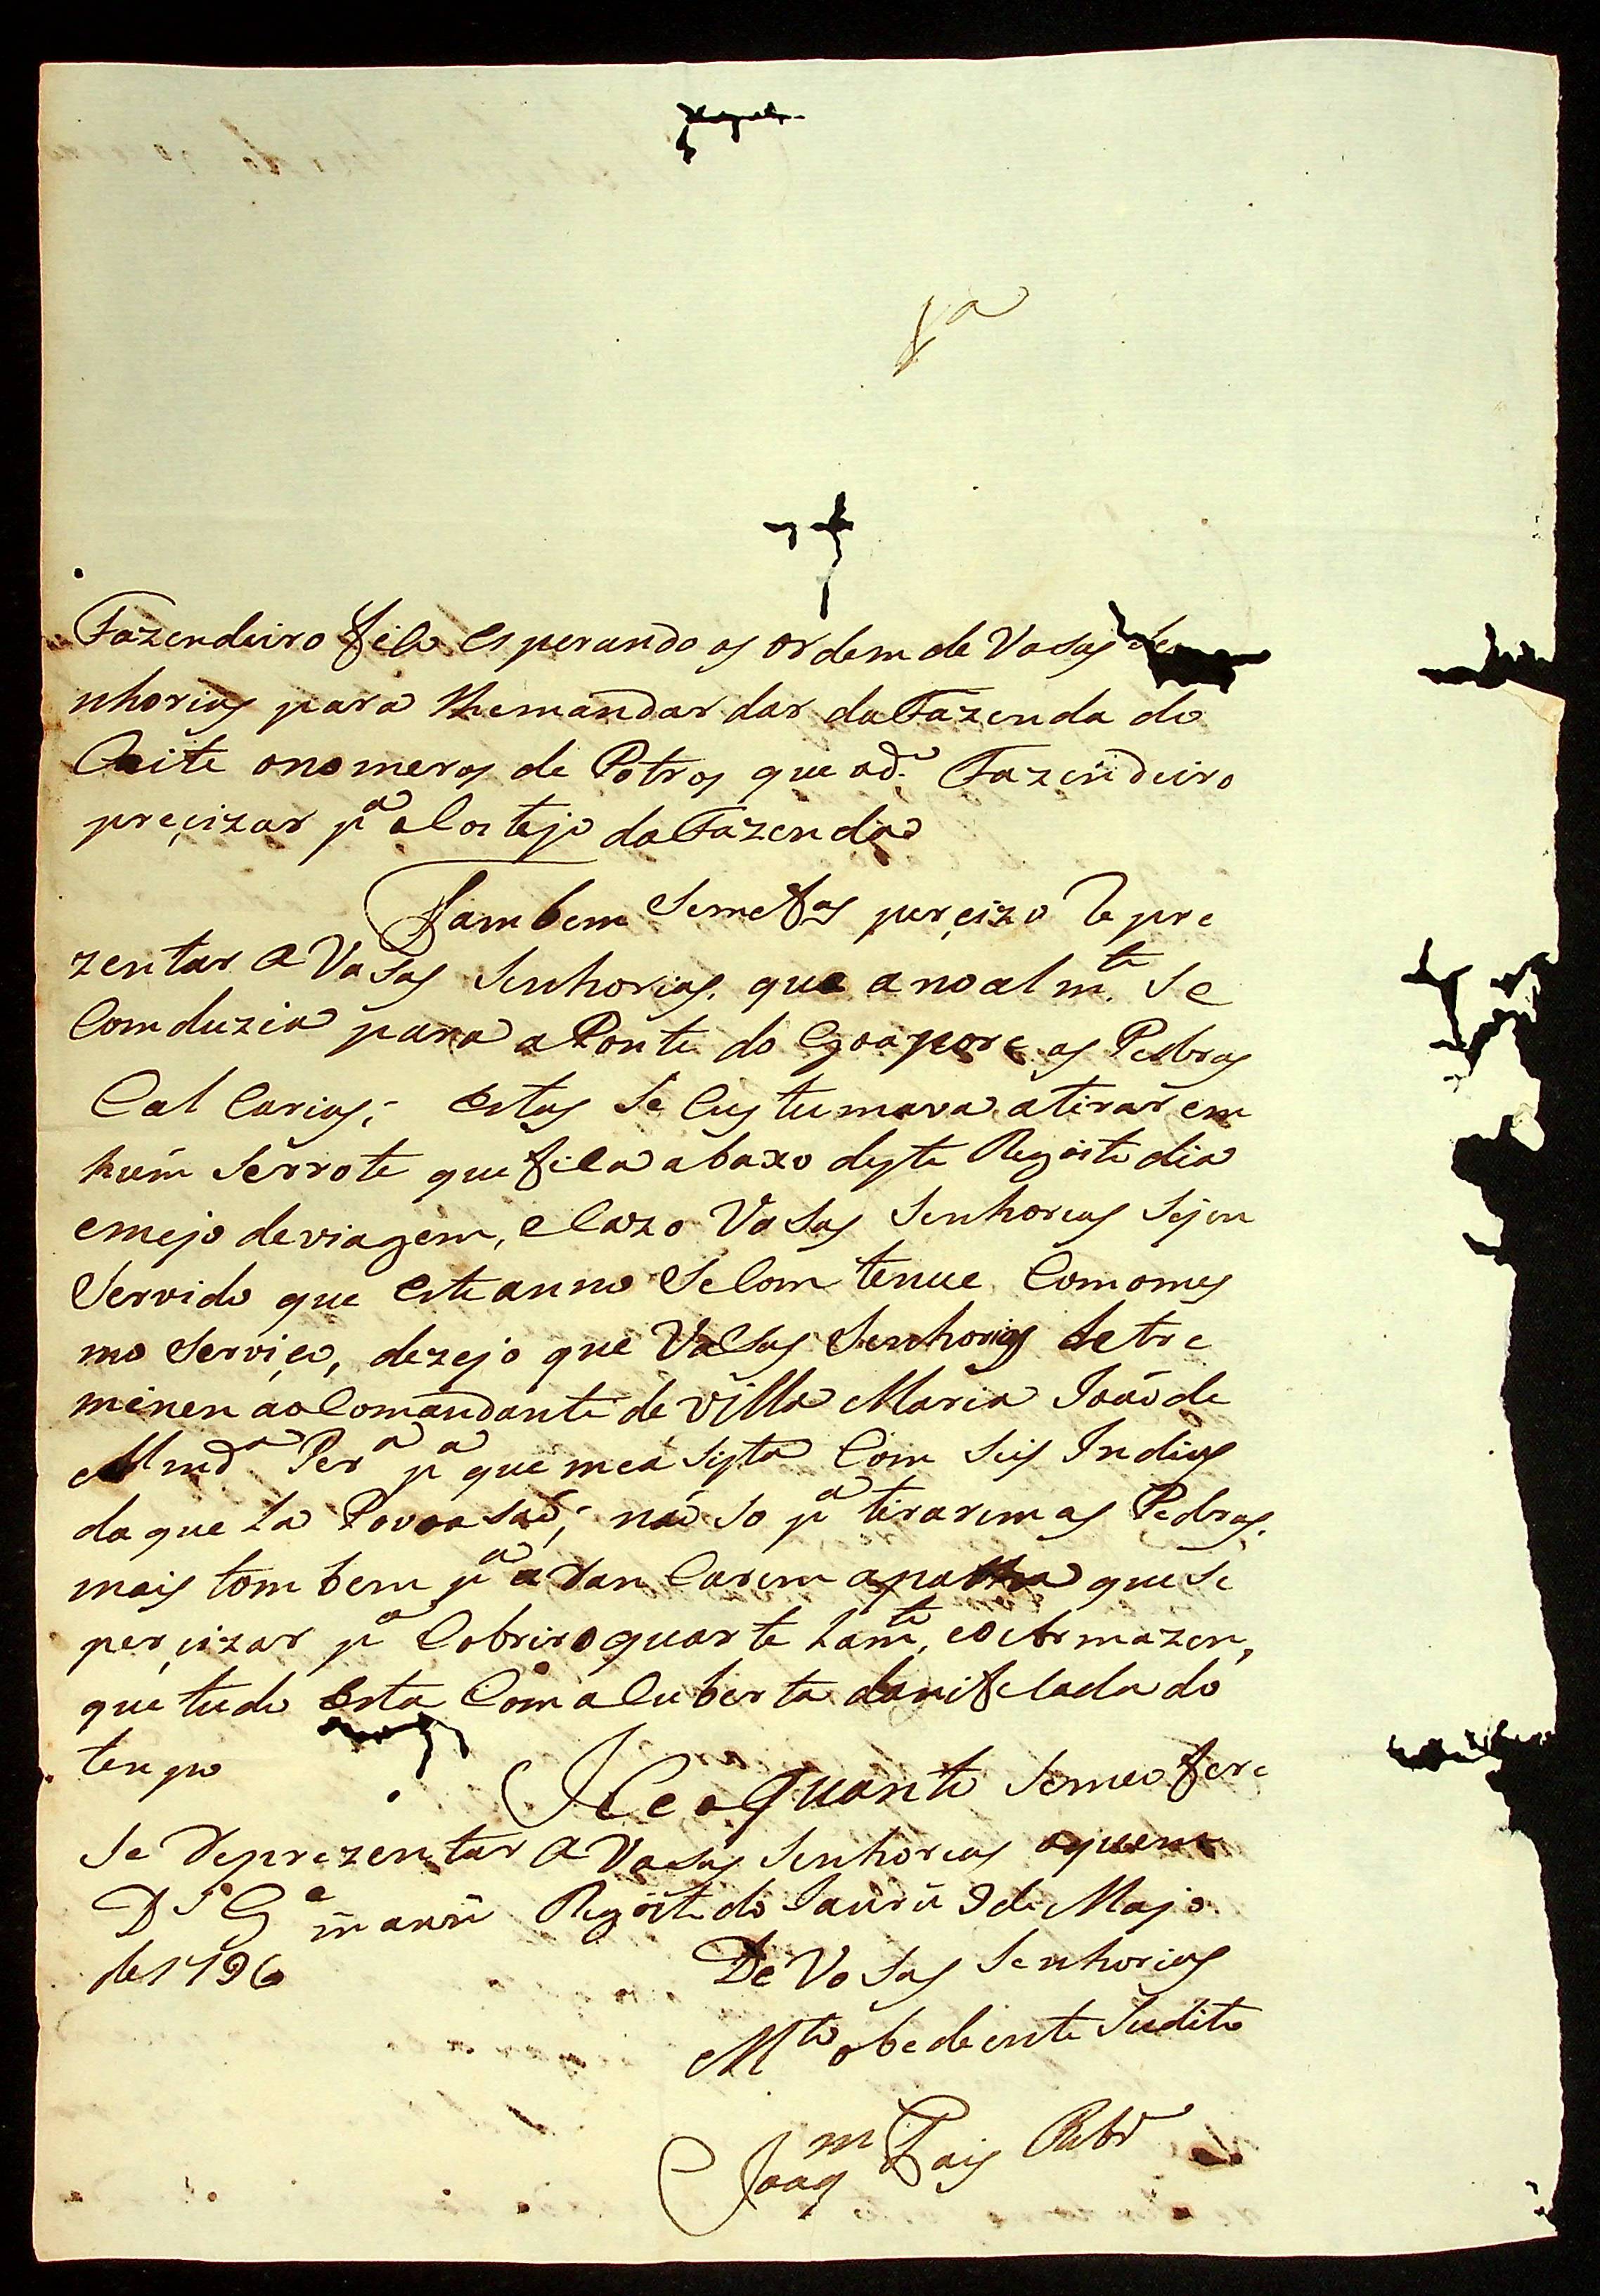 Fazendeiro fica Esperando as ordem de Vosas Se
nhorias para lhemandar dar daFazenda do
Caite onomeros de Potros que od.º Fazendeiro
preçizar pª oCostejo daFazenda
Tambem Semefas perçizo Repre
zentar A Vosas Senhorias. que anoalmte. Se
Comduzia para aPonte do Goapore as Pedras
Calcarias; estas Se Custumava atirarem
hum Serrote que fica abaxo deste Regisite dia
emejo deviagem, eCazo Vosas Senhorias Sejen
Servido que este anno SeComtenue Comomes
mo Serviço, dezejo que Vosas Senhorias detre
minen aoComandante de Villa Maria João de
Almdª Perª pª que measista Com Seis Indios
daquela Povoasaõ; naõ So pª tirarem as Pedras.
mais tombem pª aRancarem apalha que Se
perçizar pª CobriroquarteLamte, eoArmazen,
que tudo esta ComaCuberta daneficada do
tenpo
He oQuanto Semeofere
Se Reprezentar A Vosas Senhorias aquem
Ds Ge m anñ Regisite do Jaurú 9 de Majo
de 1796
De Vosas Senhorias
Mto obediente Sudito
Joaqm Pais